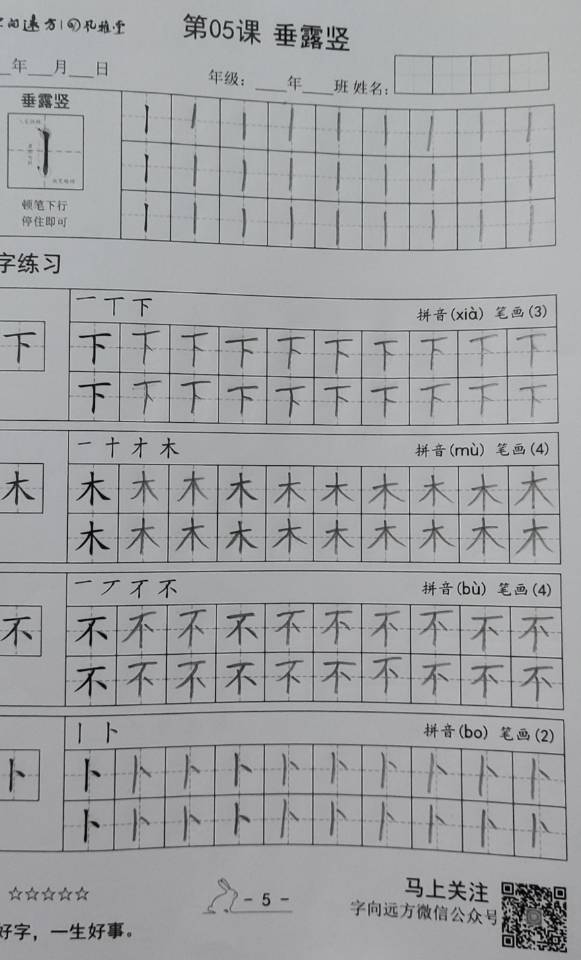 的遠方 孔雅堂
第05课 垂露竖
年___月___日
年级：____年____班 姓名：
垂露竖
顿笔下行
停住即可
丨丨丨丨丨丨丨丨丨
丨丨丨丨丨丨丨丨丨
丨丨丨丨丨丨丨丨丨
字练习
一丅下
拼音(xià) 笔画(3)
下
下下下下下下下下下下
下下下下下下下下下下
一十才木
拼音(mù) 笔画(4)
木
木木木木木木木木木木
木木木木木木木木木木
一丆不不
拼音(bù) 笔画(4)
不
不不不不不不不不不不
不不不不不不不不不不
丨卜
拼音(bo) 笔画(2)
卜
卜卜卜卜卜卜卜卜卜卜
卜卜卜卜卜卜卜卜卜卜
☆☆☆☆☆
- 5 -
马上关注
字向远方微信公众号
好字，一生好事。